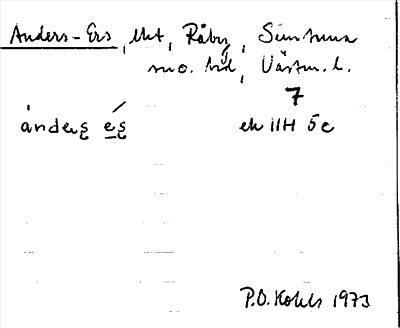 Anders-Ers, lht, Råby, Simtuna
sn o. hd, Västm. l.
7
ánderş éş
ek 11H 5c
P.O. Kohls 1973